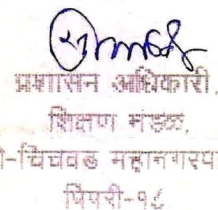 प्रशासन अधिकारी,
शिक्षण मंडळ,
ी-चिंचवड महानगरपा
पिंपरी-१८